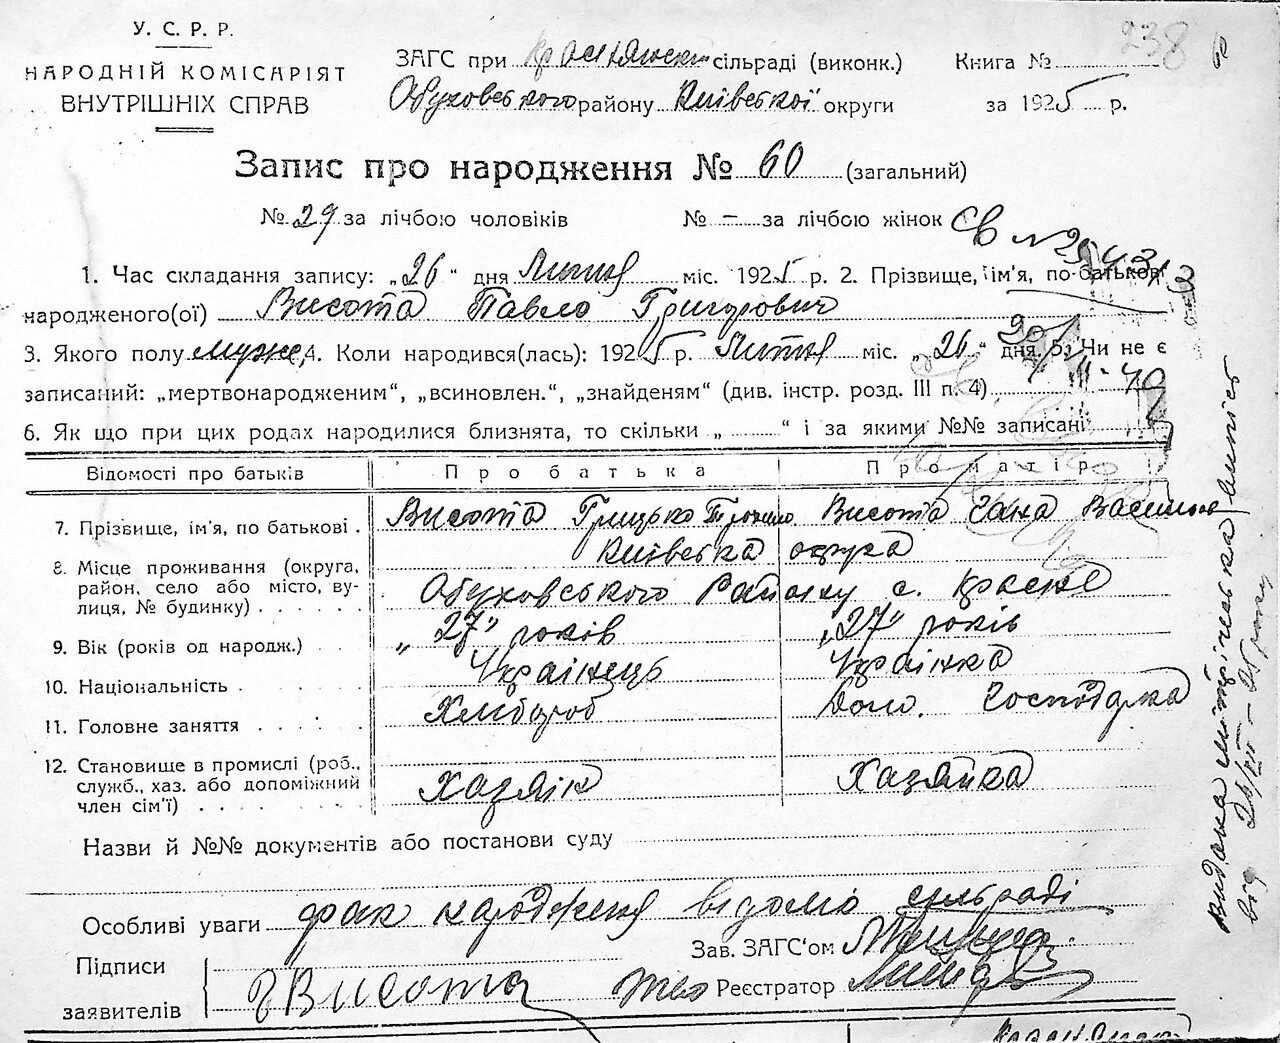 У. С. Р. Р.
НАРОДНІЙ КОМІСАРІЯТ
ВНУТРІШНІХ СПРАВ
238
ЗАГС при сільраді (виконк.) Книга №
Обуховського району Київської округи за 1925 р.
Запис про народження № 60 (загальний)
№ 29 за лічбою чоловіків № – за лічбою жінок
1. Час складання запису: „26“ дня Липня міс. 1925 р. 2. Прізвище, ім'я, по-батькові
народженого(ої) Висота Павло Григорович
3. Якого полу муж. 4. Коли народився(лась): 1925 р. Липня міс. „26“ дня. 5. Чи не є
записаний: „мертвонародженим“, „всиновлен.“, „знайденям“ (див. інстр. розд. III п. 4)
6. Як що при цих родах народилися близнята, то скільки „ “ і за якими №№ записані
Відомості про батьків Про батька Про матір
7. Прізвище, ім'я, по батькові . Висота Грицько Висота Гана
Київська округа
8. Місце проживання (округа, район, село або місто, вулиця, № будинку) . . . . . . Обуховського Району с. Красне
9. Вік (років од народж.) . . „27“ років „27“ років
10. Національність . . . . . . Українець Українка
11. Головне заняття . . . . . Хлібороб Дом. Господарка
12. Становище в промислі (роб., служб., хаз. або допоміжний член сім'ї) . . . . . . . Хазяїн Хазяйка
Назви й №№ документів або постанови суду
Особливі уваги факт народження відомо сільраді
Зав. ЗАГС'ом
Підписи
заявителів Г Висота
Реєстратор